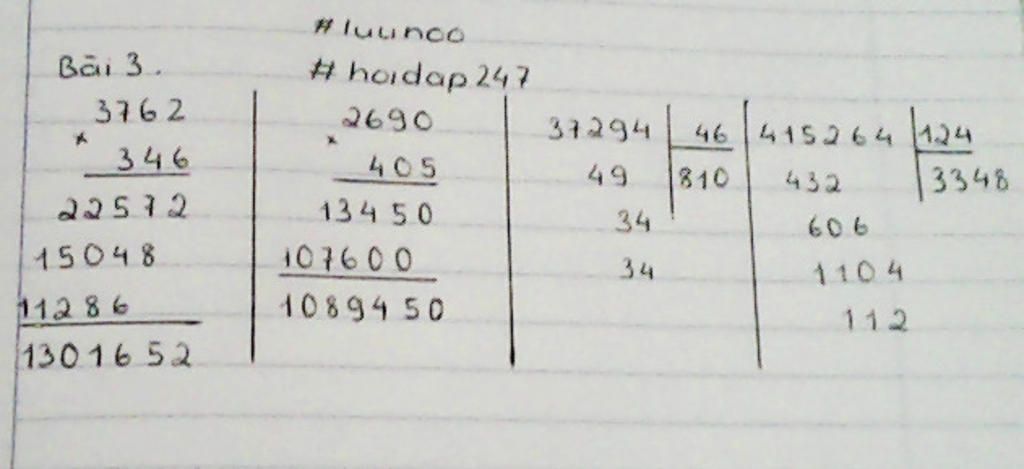 #luunoo
Bài 3. #hoidap247
3762
×
346
22572
15048
11286
1301652
2690
×
405
13450
107600
1089450
37294 46
49 810
34
34
415264 124
432 3348
606
1104
112